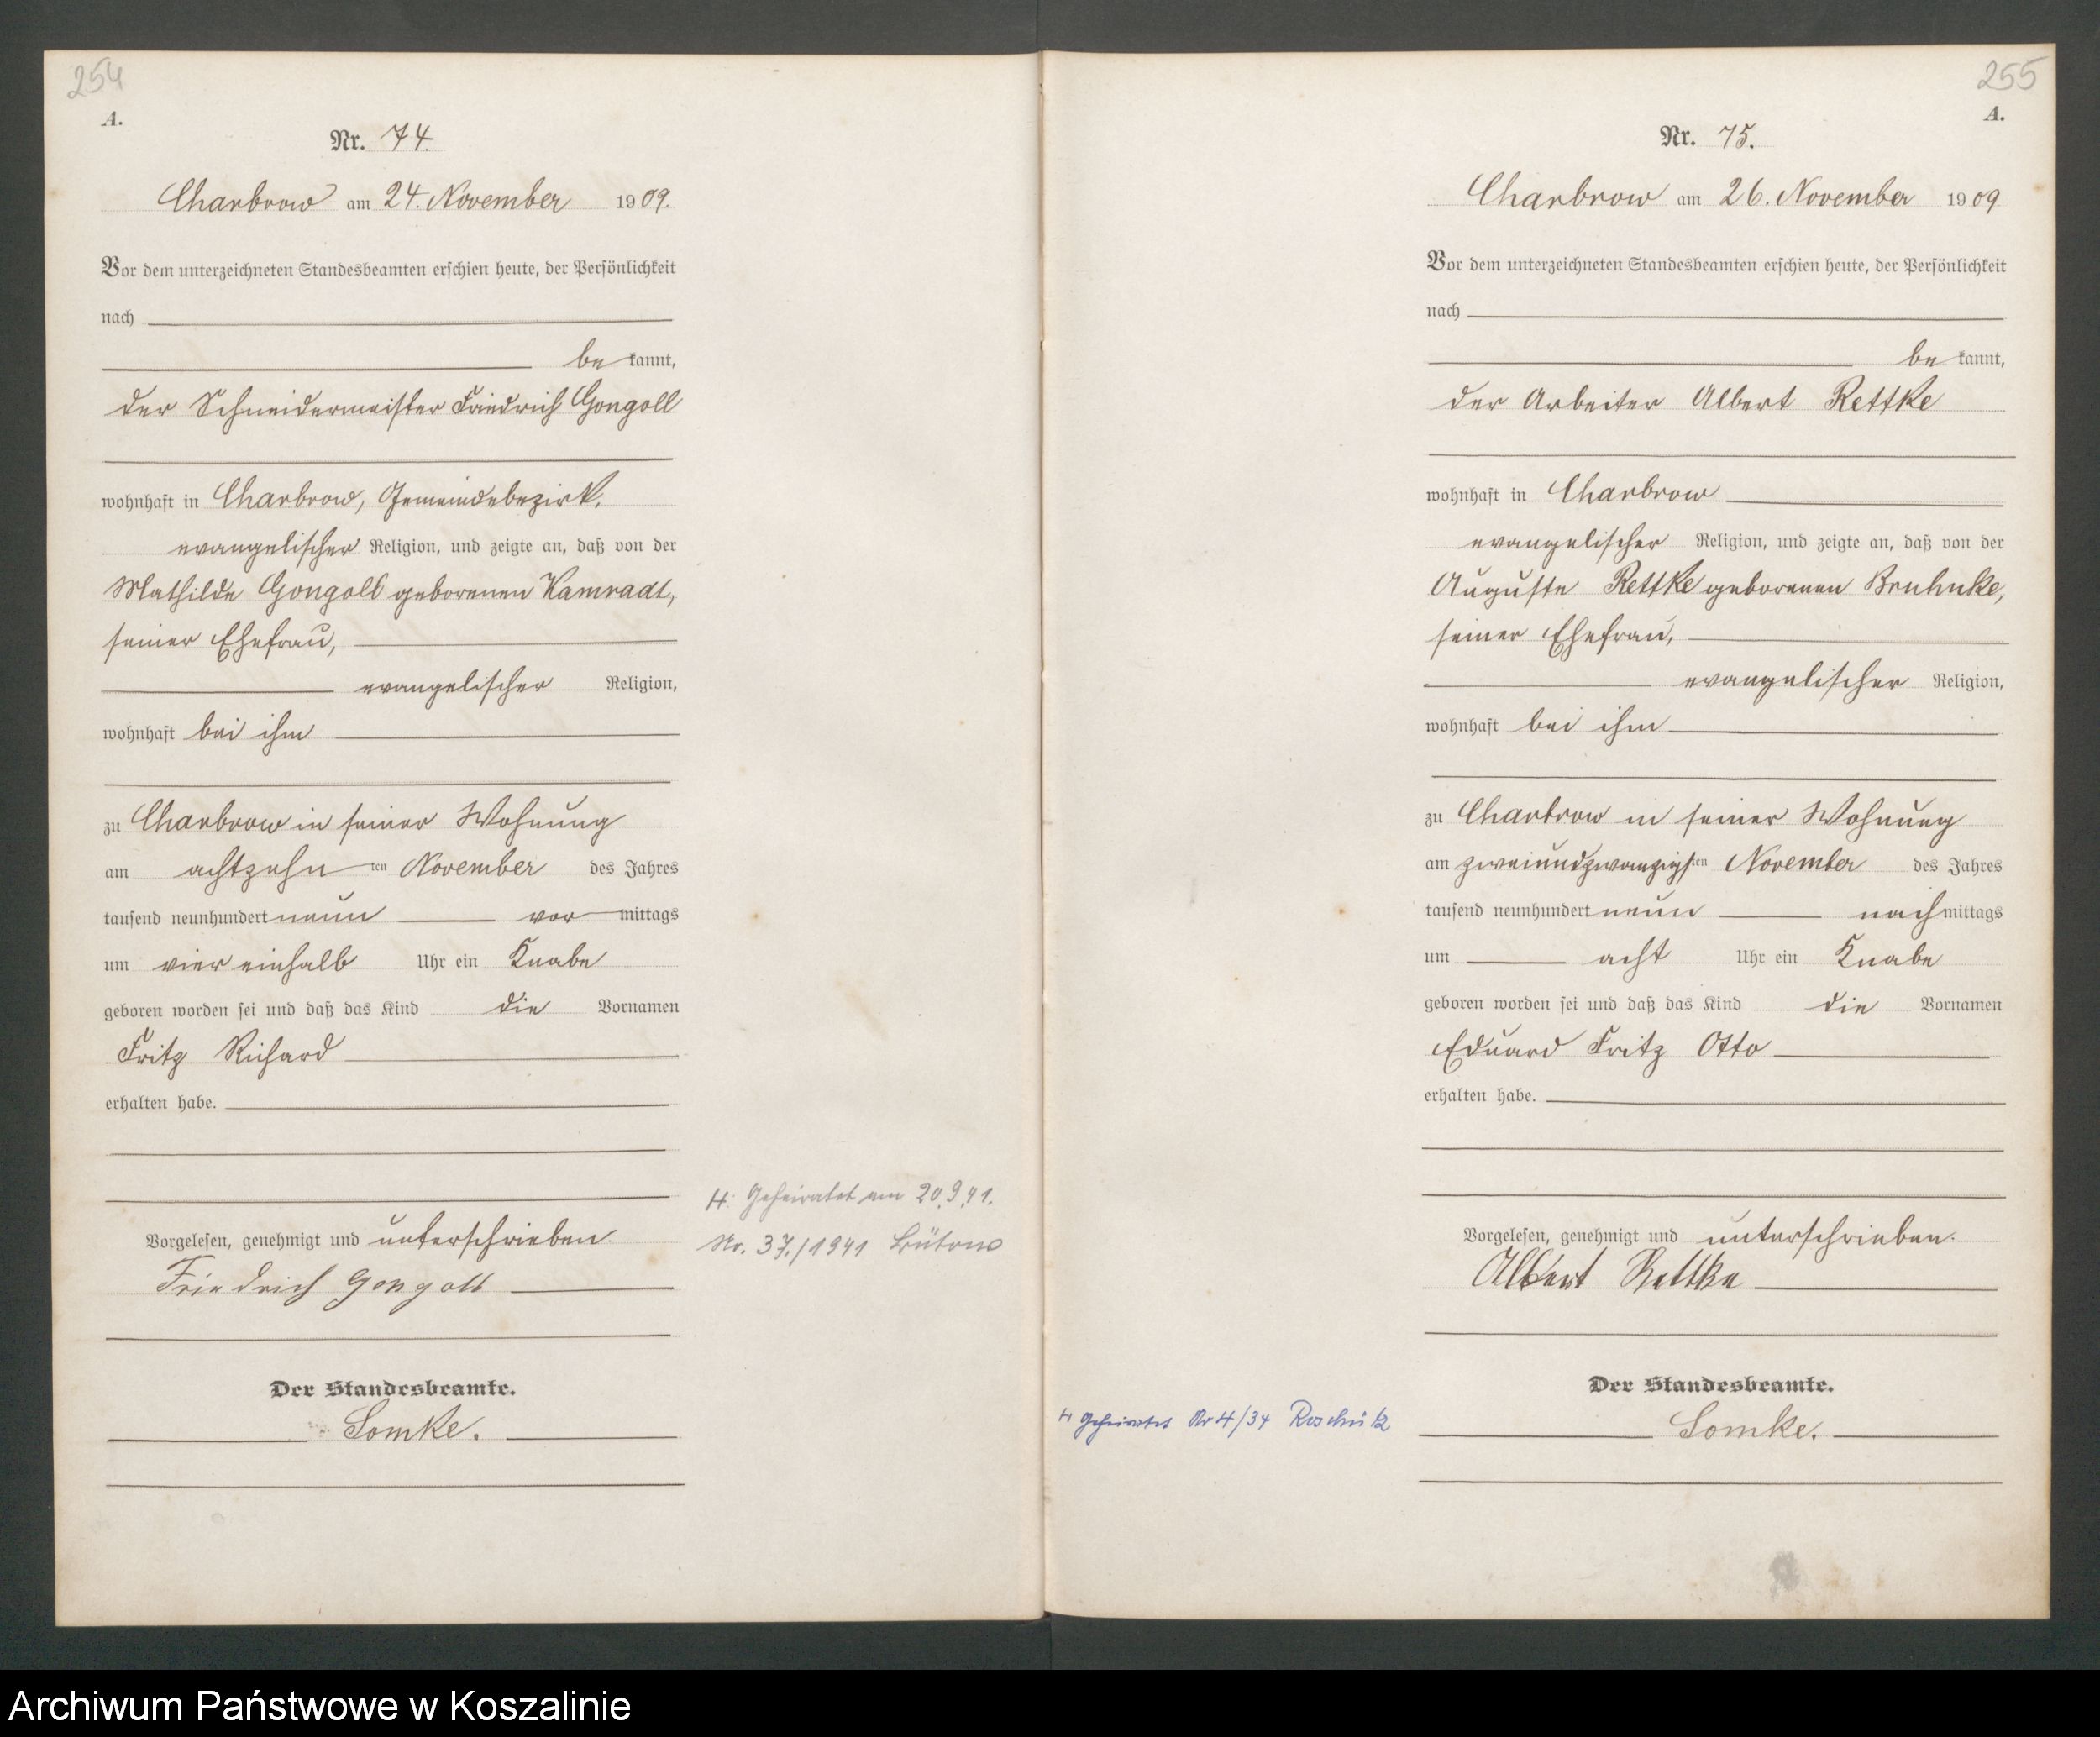 254
A.
Nr. 74.
Charbrow am 24. November 1909.
Vor dem unterzeichneten Standesbeamten erschien heute, der Persönlichkeit
nach
be kannt,
der Schneidermeister Friedrich Gongoll
wohnhaft in Charbrow, Gemeindebezirk.
evangelischer Religion, und zeigte an, daß von der
Mathilde Gongoll geborenen Kamradt,
seiner Ehefrau,
evangelischer Religion,
wohnhaft bei ihm
zu Charbrow in seiner Wohnung
am achtzehn ten November des Jahres
tausend neunhundert neun vor mittags
um vier einhalb Uhr ein Knabe
geboren worden sei und daß das Kind die Vornamen
Fritz Richard
erhalten habe.
Vorgelesen, genehmigt und unterschrieben.
Friedrich Gongoll
Der Standesbeamte.
Somke.
H. Geheiratet am 20.9.41.
Nr. 37./1941 Bütow
255
A.
Nr. 75.
Charbrow am 26. November 1909
Vor dem unterzeichneten Standesbeamten erschien heute, der Persönlichkeit
nach
be kannt,
der Arbeiter Albert Rettke
wohnhaft in Charbrow
evangelischer Religion, und zeigte an, daß von der
Auguste Rettke geborenen Bruhnke,
seiner Ehefrau,
evangelischer Religion,
wohnhaft bei ihm
zu Charbrow in seiner Wohnung
am zweiundzwanzigsten November des Jahres
tausend neunhundert neun nachmittags
um acht Uhr ein Knabe
geboren worden sei und daß das Kind die Vornamen
Eduard Fritz Otto
erhalten habe.
Vorgelesen, genehmigt und unterschrieben.
Albert Rettke
Der Standesbeamte.
Somke.
H Geheiratet Nr 4/34 Roschütz
Archiwum Państwowe w Koszalinie